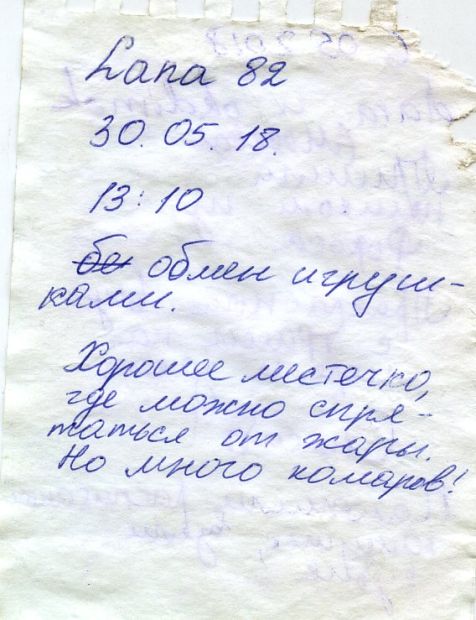 Lana 82
30.05.18.
13:10
бе обмен игруш-
ками.
Хорошее местечко,
где можно спря-
таться от жары.
Но много комаров!